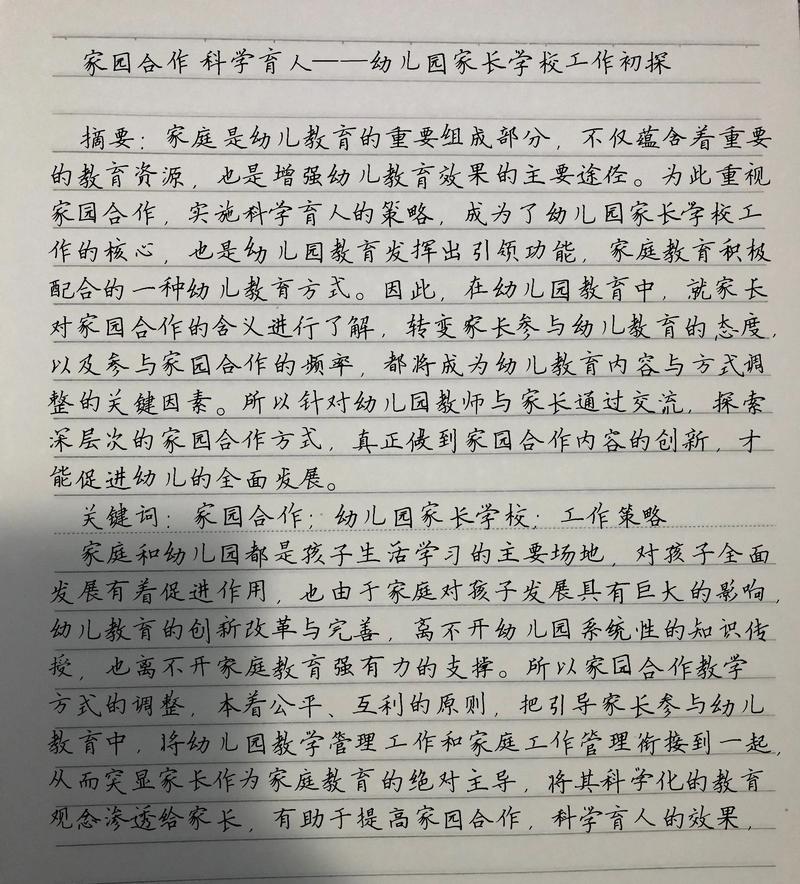 家园合作 科学育人——幼儿园家长学校工作初探
摘要：家庭是幼儿教育的重要组成部分，不仅蕴含着重要
的教育资源，也是增强幼儿教育效果的主要途径。为此重视
家园合作，实施科学育人的策略，成为了幼儿园家长学校工
作的核心，也是幼儿园教育发挥出引领功能，家庭教育积极
配合的一种幼儿教育方式。因此，在幼儿园教育中，就家长
对家园合作的含义进行了解，转变家长参与幼儿教育的态度，
以及参与家园合作的频率，都将成为幼儿教育内容与方式调
整的关键因素。所以针对幼儿园教师与家长通过交流，探索
深层次的家园合作方式，真正做到家园合作内容的创新，才
能促进幼儿的全面发展。
关键词：家园合作；幼儿园家长学校；工作策略
家庭和幼儿园都是孩子生活学习的主要场地，对孩子全面
发展有着促进作用，也由于家庭对孩子发展具有巨大的影响，
幼儿教育的创新改革与完善，离不开幼儿园系统性的知识传
授，也离不开家庭教育强有力的支撑。所以家园合作教学
方式的调整，本着公平、互利的原则，把引导家长参与幼儿
教育中，将幼儿园教学管理工作和家庭工作管理衔接到一起，
从而突显家长作为家庭教育的绝对主导，将其科学化的教育
观念渗透给家长，有助于提高家园合作，科学育人的效果，